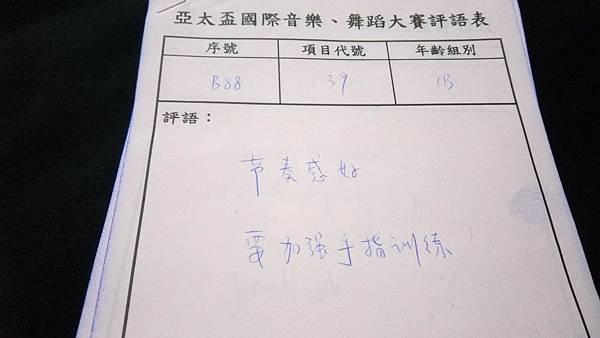 亞太盃國際音樂、舞蹈大賽評語表
序號 項目代號 年齡組別
B88 39 1B
評語：
节奏感好
要加强手指训练